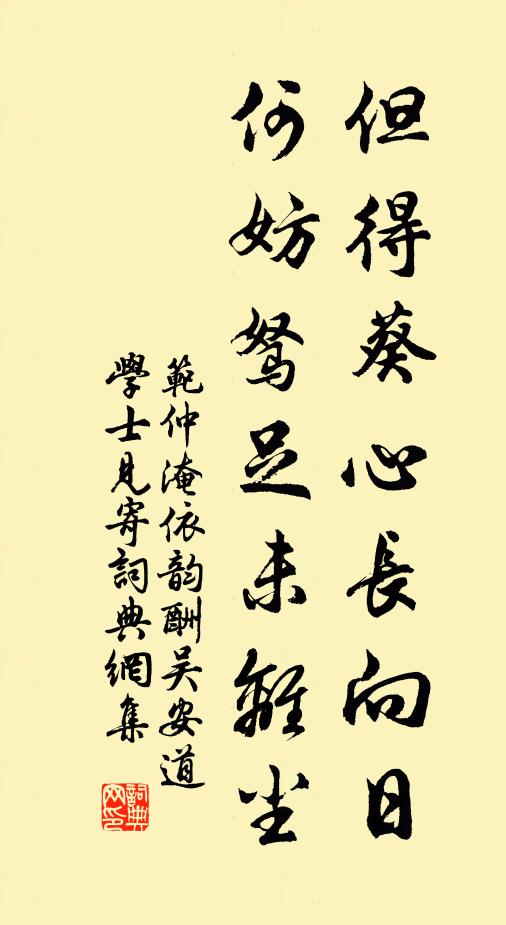 但得葵心長向日
何妨駑足未離塵
範仲淹依韵酬吴安道
學士見寄詞典網集
詞典
网印